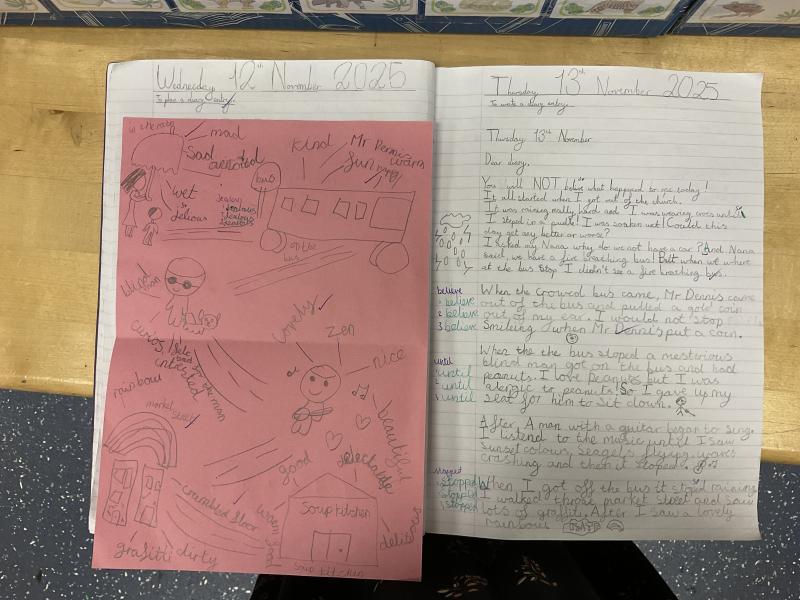 Wednesday 12th November 2025
To plan a diary entry.
mad
Sad
wet
jelious
Jealous
Jealous
Jealous
bus
Kind
Mr Dennis
fun
on the bus
blind man
Lovely
Zen
nice
beautiful
delectable
good
rainbow
market street
crumbled floor
warm food
Soup kitchen
delicious
grafitti dirty
Soup kitchen
Thursday 13th November 2025
To write a diary entry.
Thursday 13th November
Dear diary,
You will NOT belive what happyed to me today!
It all started when I got out of the church.
It was raining really hard and I was wearing crocs until
I steped in a pudle! I was soaken wet! Could this
day get any better or worse?
I asked my Nana why do we not have a car? And Nana
said, we have a fire breathing bus! But when we where
at the bus stop I didn't see a fire breathing bus.
believe
1 believe
2 believe
3 believe
When the crowed bus came, Mr Dennis came
out of the bus and pulled a gold coin
out of my ear. I would not stop
Smileing when Mr Dennis put a coin.
until
1 until
2 until
3 until
When the the bus stoped a mesterious
blind man got on the bus and had
peanuts. I love peanuts but I was
alergic to peanuts! So I gave up my
seat for him to sit down.
After, A man with a guitar began to sing.
I listend to the music until I saw
sunset colours, seagels flying, waves
crashing and then it stoped.
stopped
stopped
stopped
stopped
When I got off the bus it stopd raining
I walked throw market street and saw
lots of grafiti. After I saw a lovely
rainbow